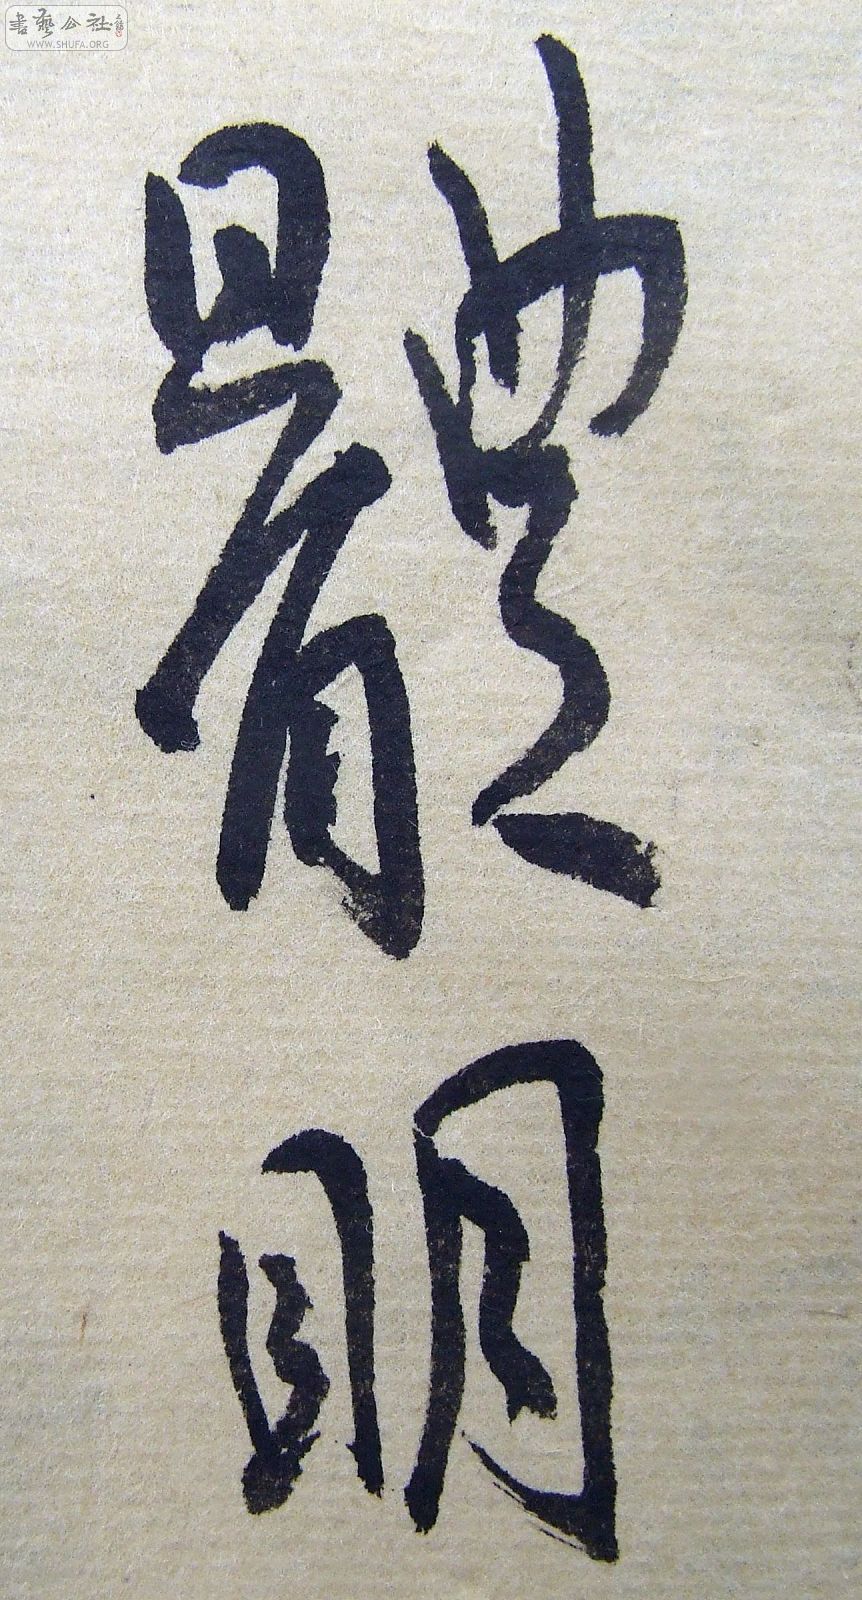 書藝公社
WWW.SHUFA.ORG
體明